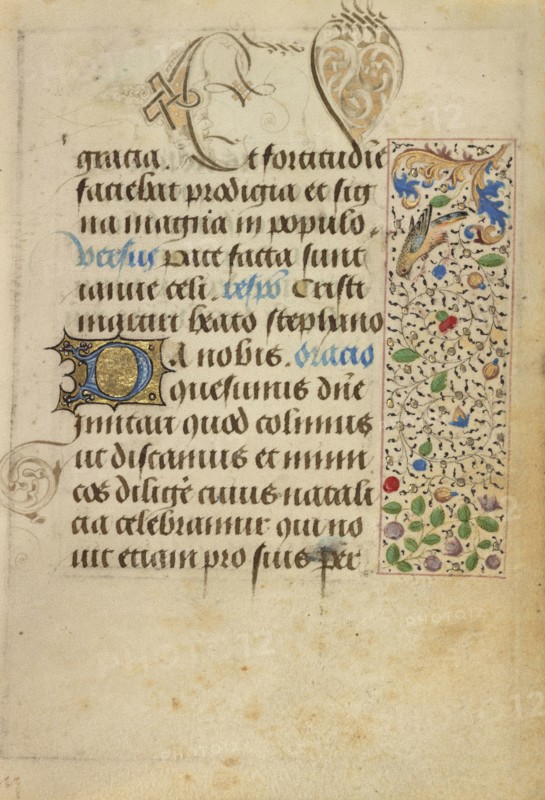 gracia. Et fortitudīe
faciebat prodigia et sig
na magna in populo.
Versus Pate facta sunt
ianue celi. respō Cristi
martiri beato stephano
Da nobis. oracio
quesumus dn̄e
imitari quod colimus
ut discamus et inimi
cos diligē cuius natali
cia celebramus qui no
uit etiam pro suis per